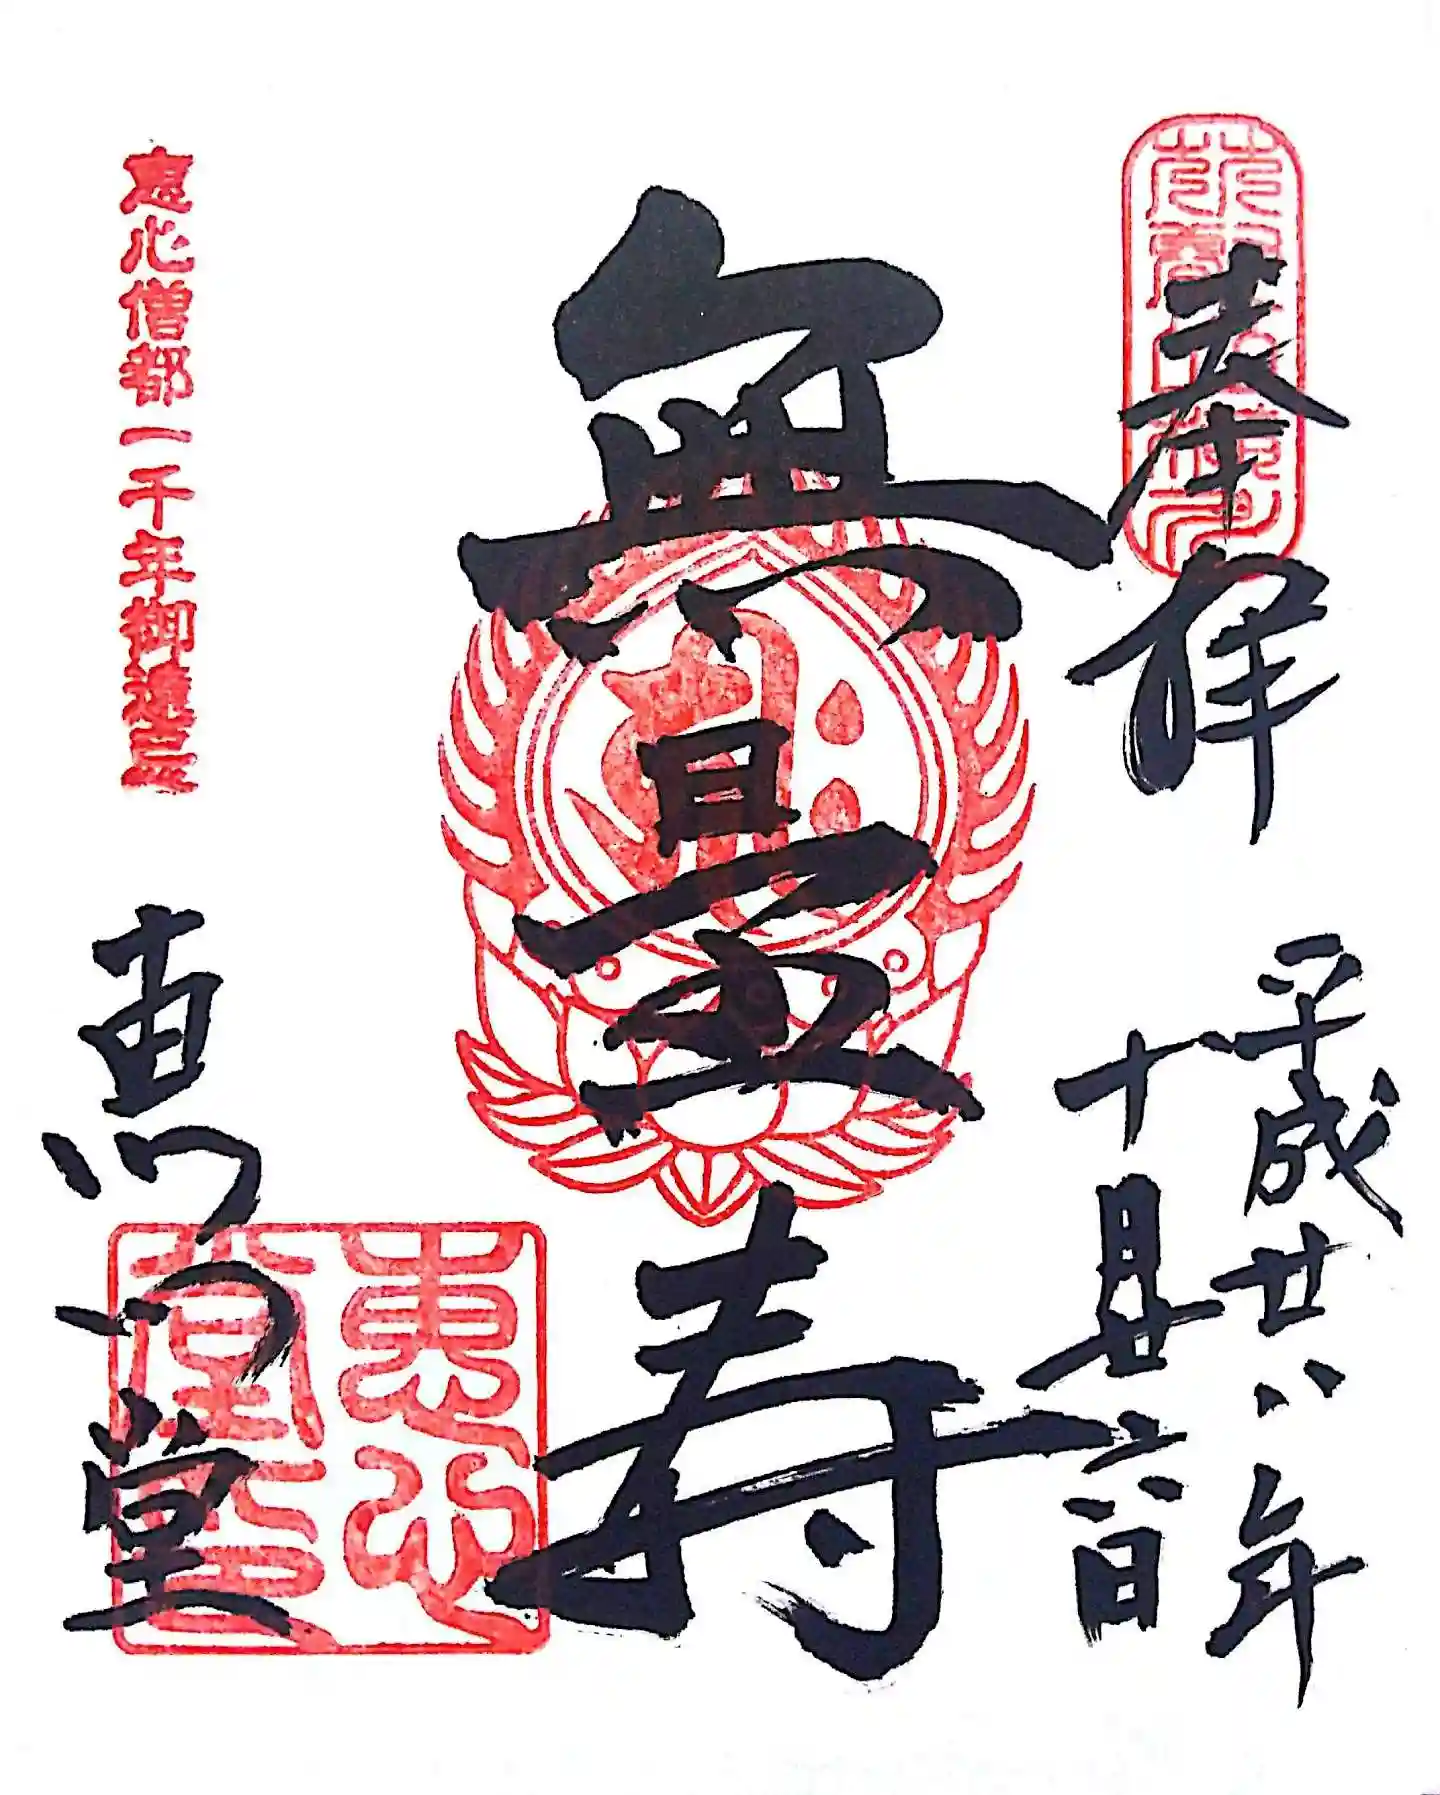 奉拝
平成廿八年
十月廿六日
無量寿
恵心僧都一千年御遠忌
恵心堂
恵心
堂印